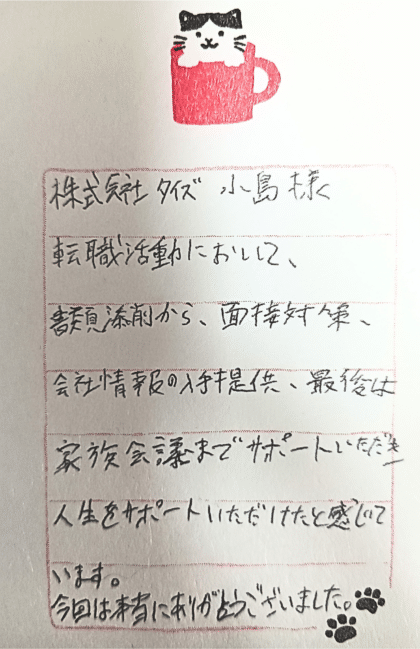 株式会社タイズ 小島様
転職活動において、
書類添削から、面接対策、
会社情報の入手提供、最後は
家族会議までサポートいただき
人生をサポートいただけたと感じて
います。
今回は本当にありがとうございました。